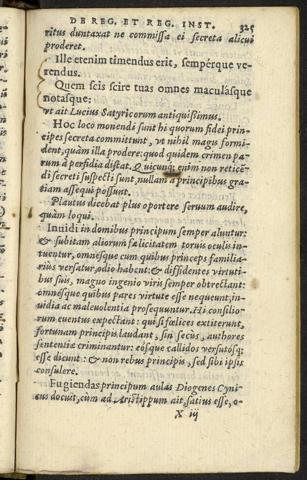 DE REG. ET REG. INST. 325
ritus duntaxat ne commissa ei secreta alicui
proderet.
Ille etenim timendus erit, sempérque ve-
rendus.
Quem scis scire tuas omnes maculásque
notasque:
vt ait Lucius Satyricorum antiquißimus.
Hoc loco monendi sunt hi quorum fidei prin-
cipes secreta committunt, vt nihil magis formi-
dent, quàm illa prodere: quod quidem crimen pa-
rum à perfidia distat. Quicunq; enim non retice-
di secreti suspecti sunt, nullam à principibus gra-
tiam assequi possunt.
Plautus dicebat plus oportere seruum audire,
quàm loqui.
Inuidi in domibus principum semper aluntur:
& subitam aliorum fælicitatem toruis oculis in-
tuentur, omnésque cum quibus princeps familia-
riùs versatur, odio habent: & diffidentes virtuti-
bus suis, magno ingenio viris semper obtrectant:
omnésque quibus pares virtute esse nequeunt, in-
uidia ac maleuolentia prosequuntur. Hi consilio-
rum euentus expectant: qui si fœlices extiterunt,
fortunam principis laudant, sin secùs, authores
sententiæ criminantur: eósque callidos versutosq;
esse dicunt: & non rebus principis, sed sibi ipsis
consulere.
Fugiendas principum aulas Diogenes Cyni-
cus docuit, cùm ad Aristippum ait, satius esse, o-
X iij